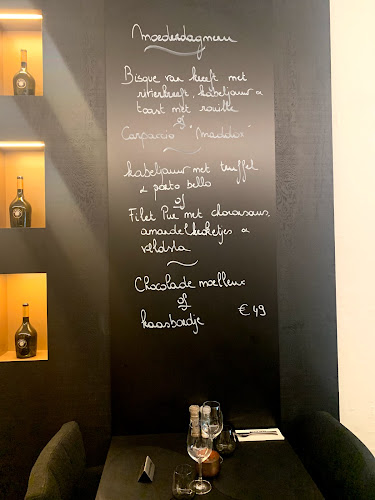 Moederdagmenu
Bisque van kreeft met
rivierkreeft, kabeljauw &
toast met rouille
of
Carpaccio "Maddox"
kabeljauw met truffel
& porto bello
of
Filet Pur met choronsaus,
amandelkroketjes &
veldsla
Chocolade moelleux
of
kaasbordje € 49